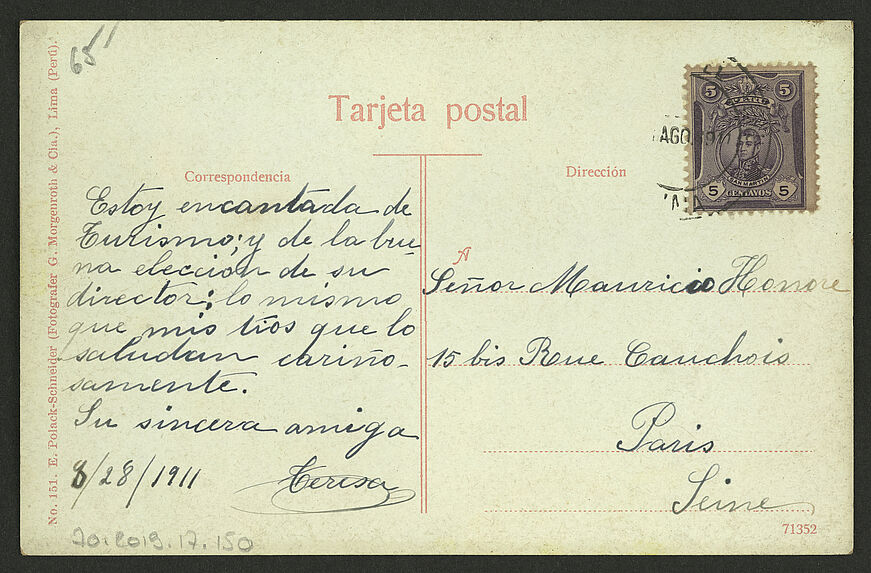 65
Tarjeta postal
Correspondencia
Estoy encantada de
Turismo; y de la bue-
na elección de su
director; lo mismo
que mis tíos que lo
saludan cariño-
samente.
Su sincera amiga
8/28/1911
Teresa
Dirección
5 5
PERÚ
SAN MARTIN
5 5
CENTAVOS
AGO
A
Señor Mauricio Honore
15 bis Rue Cauchois
Paris
Seine
71352
No. 151. E. Polack-Schneider (Fotografer G. Morgenroth & Cia.), Lima (Perú).
70.2019.17.150